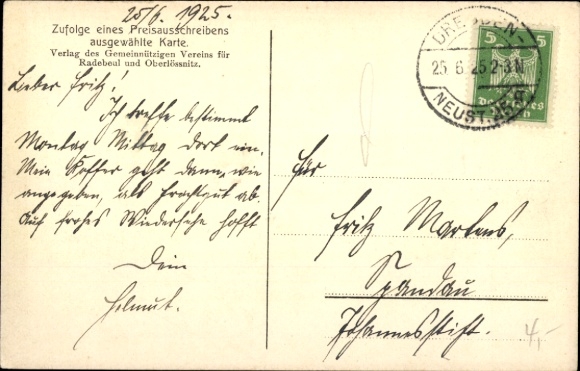 25/6. 1925.
Zufolge eines Preisausschreibens
ausgewählte Karte.
Verlag des Gemeinnützigen Vereins für
Radebeul und Oberlössnitz.
Lieber Fritz!
Ich treffe bestimmt
Montag Mittag dort ein.
Mein Koffer geht dann, wie
angegeben, als Frachtgut ab.
Auf frohes Wiedersehn hofft
Dein
Helmut.
DRESDEN-
25 6 25 2-3N
NEUST.
5 5
Deutsches
Reich
Für
Fritz Martens,
Spandau
Johannesstift.
4,-